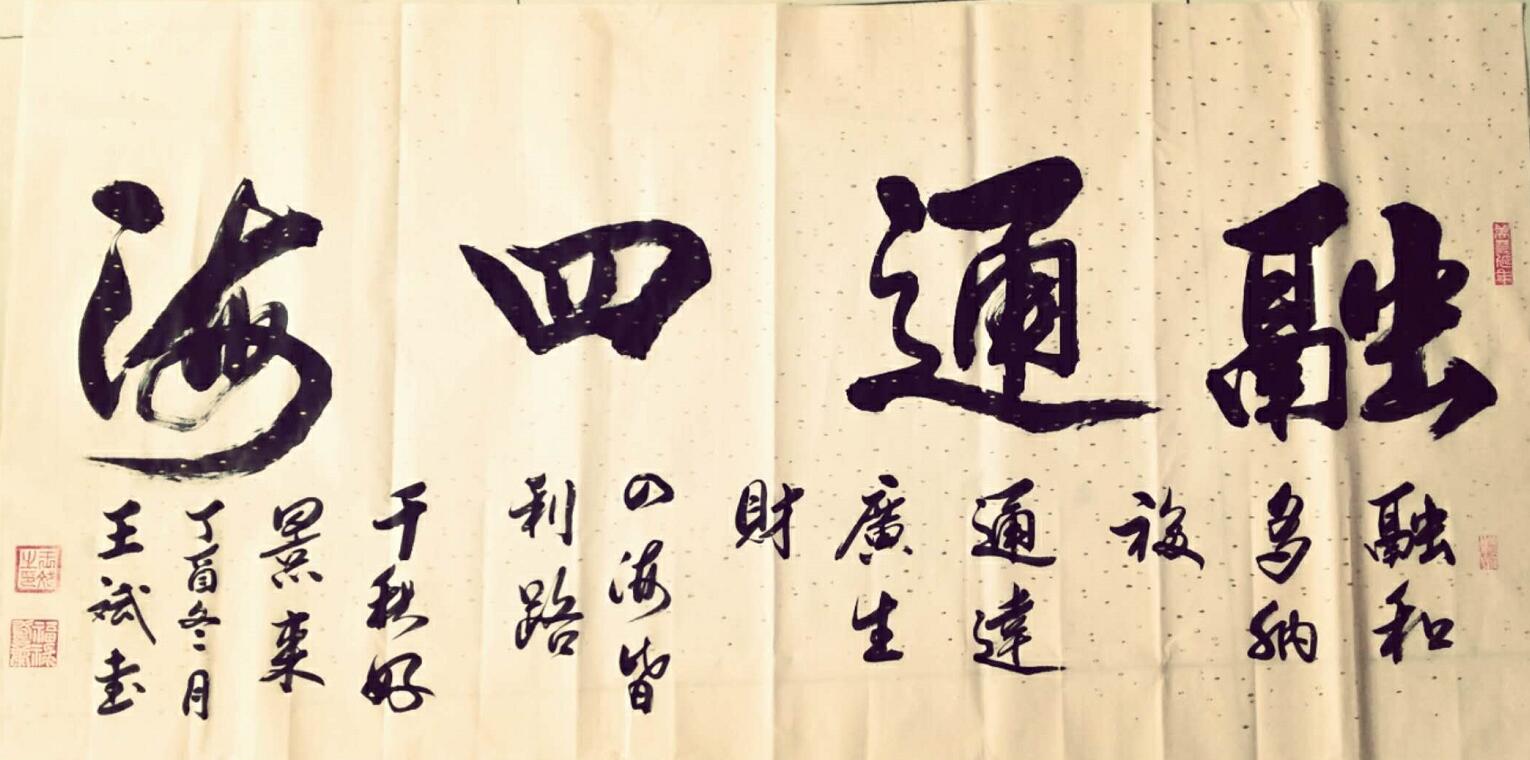 融通四海
融和
多納
福
通達
廣生
財
四海皆
利路
千秋好
景來
丁酉冬月
王斌書